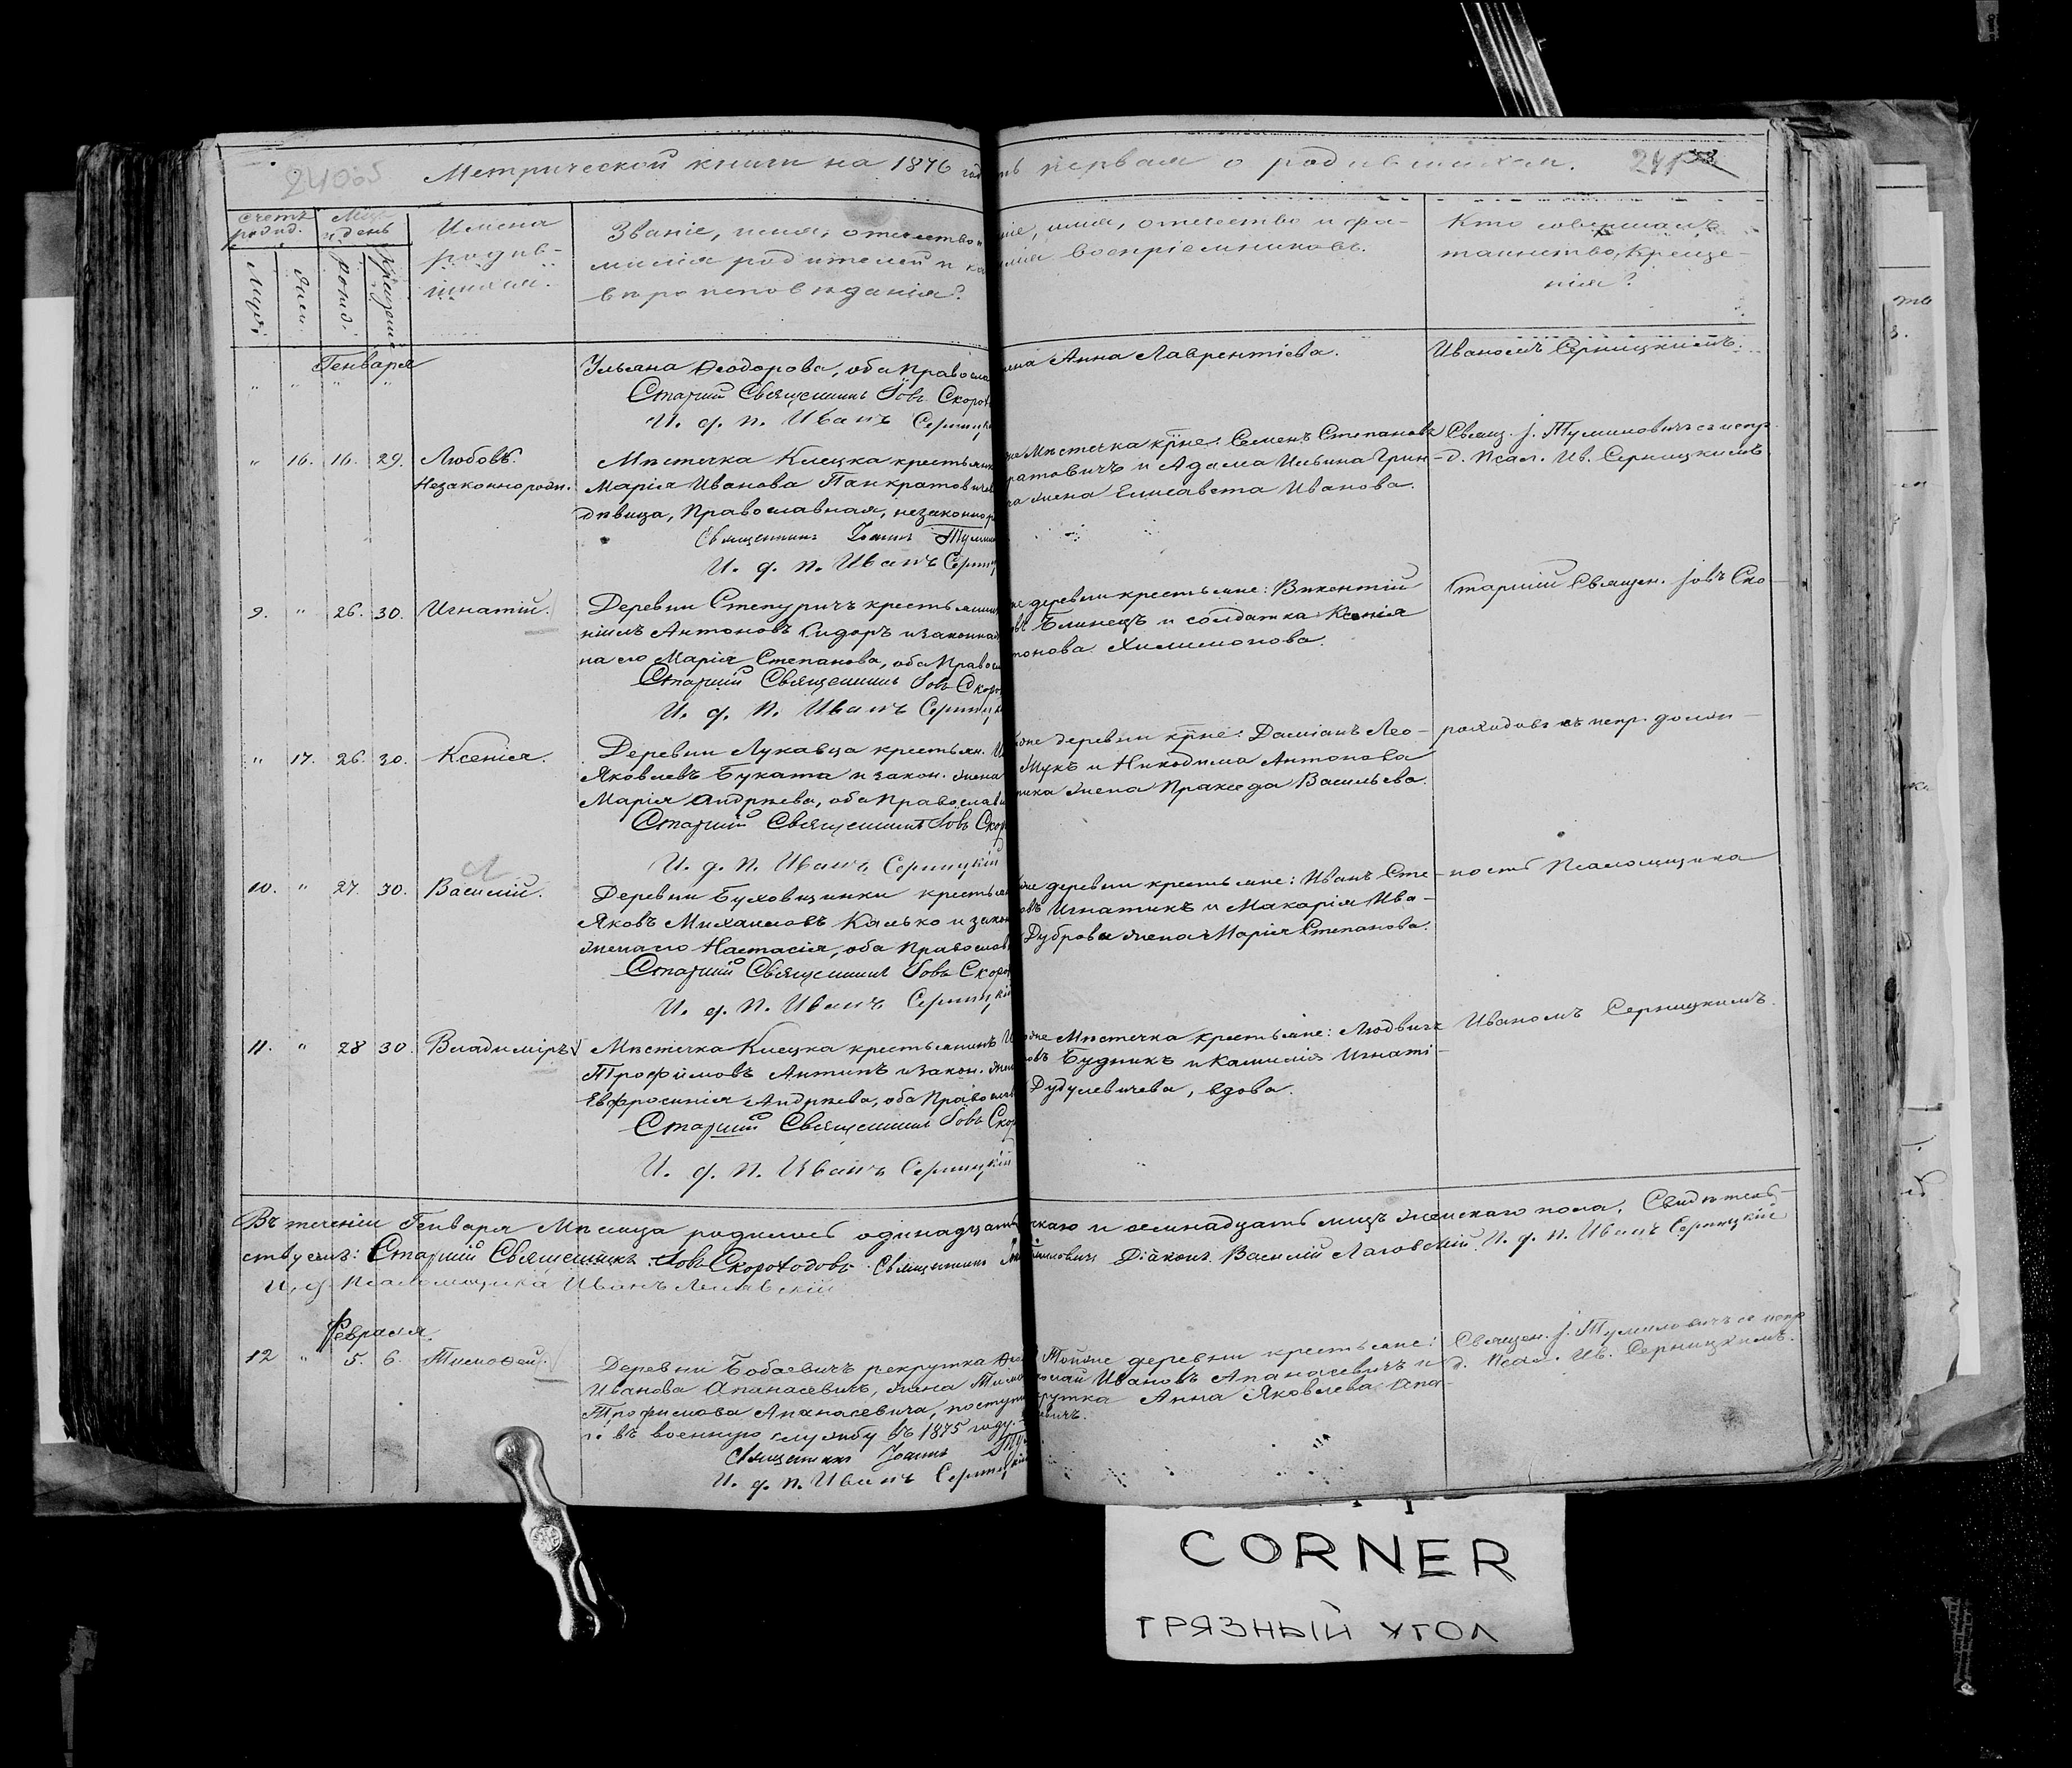 Метрической книги на 1876 год
ть первая о родившихся.
счетъ родид.
Мцъ и день
Имена родив-
шихся.
Званіе, имя, отчество и
милія родителей и ка
вѣроисповѣданія?
ніе, имя, отчество и фа-
милія воспріемниковъ.
Кто совершалъ
таинство, Креще-
нія?
Генваря
Ульяна Ѳеодорова, оба Правосла
Старшій Священникъ Іовъ Скорох
И. д. п. Иванъ Серницк
на Анна Лаврентіева.
Иваномъ Серницкимъ.
" 16. 16. 29. Любовь.
Незаконнорожд.
Мѣстечка Клецка крестьянк
Марія Иванова Панкратовичев
дѣвица, Православная, незаконнор
Священникъ Іоаннъ Тумил
И. д. п. Иванъ Серниц
Мѣстечка кр̃не: Семенъ Степановъ
ратовичъ и Адама Ильина Грин-
ка жена Елисавета Иванова.
Свящ. І. Тумиловичъ съ испр.
д. Псал. Ив. Серницкимъ
9. " 26. 30. Игнатій.
Деревни Степуричъ крестьянин
німъ Антоновъ Сидоръ и законная
на его Марія Степанова, оба Правосл
Старшій Священникъ Іовъ Скоро
И. д. п. Иванъ Серницк
же деревни крестьяне: Викентій
овъ Блинецъ и солдатка Ксенія
тонова Хилимонова.
Старшій Священ. Іовъ Ско-
" 17. 26. 30. Ксенія.
Деревни Лукавца крестьян. И
Яковлевъ Буката и закон. жена
Марія Андреева, оба Православн
Старшій Священникъ Іовъ Скор
И. д. п. Иванъ Серницкій
же деревни кр̃не: Даміанъ Лео-
Жукъ и Никодима Антонова
ника жена Пракседа Васильева.
роходовъ съ испр. должн-
10. " 27. 30. Василій.
Деревни Буховщинки крестьян
Яковъ Михаиловъ Калько и закон
жена его Настасія, оба Православ
Старшій Священникъ Іовъ Скоро
И. д. п. Иванъ Серницкій
же деревни крестьяне: Иванъ Сте-
овъ Игнатикъ и Макарія Ива-
Дуброва жена Марія Степанова.
ность Псаломщика
11. " 28 30. Владиміръ
Мѣстечка Клецка крестьянинъ И
Трофимовъ Антипъ и закон. жен
Евфросинія Андреева, оба Правосла
Старшій Священникъ Іовъ Скор
И. д. п. Иванъ Серницкій
же Мѣстечка крестьяне: Людвигъ
овъ Будникъ и Камилія Игнаті-
Дудулевичева, вдова.
Иваномъ Серницкимъ.
Въ теченіи Генваря Мѣсяца родилось одинадцать
жскаго и семнадцать лицъ женскаго пола. Свидѣтель-
ствуемъ: Старшій Священникъ Іовъ Скороходовъ. Священникъ
миловичъ Діаконъ Василій Лаговскій. И. д. п. Иванъ Серницкій
И. д. Псаломщика Иванъ
Февраля.
12 " 5. 6. Тимоѳей.
Деревни Бобаевичъ рекрутка
Иванова Апанасевичъ, жена Тимо
Трофимова Апанасевича, поступи
го въ военную службу въ 1875 году.
Священникъ Іоаннъ Ту
И. д. п. Иванъ Серницкій
Тойже деревни крестьяне:
колай Ивановъ Апанасевичъ и
крутка Анна Яковлева Апа-
севичъ.
Священ. І. Тумиловичъ съ испр
д. Псал. Ив. Серницкимъ.
CORNER
ГРЯЗНЫЙ УГОЛ